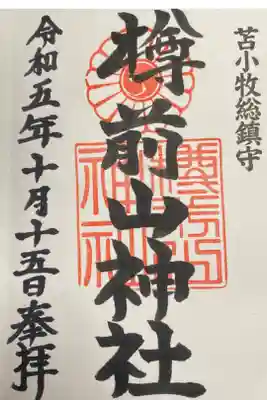 苫小牧総鎮守
樽前山神社
令和五年十月十五日奉拝